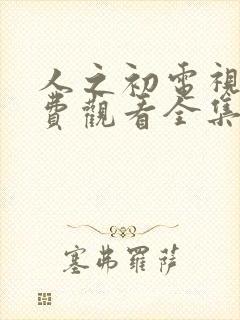 人之初電視
費觀看全集
塞弗羅薩